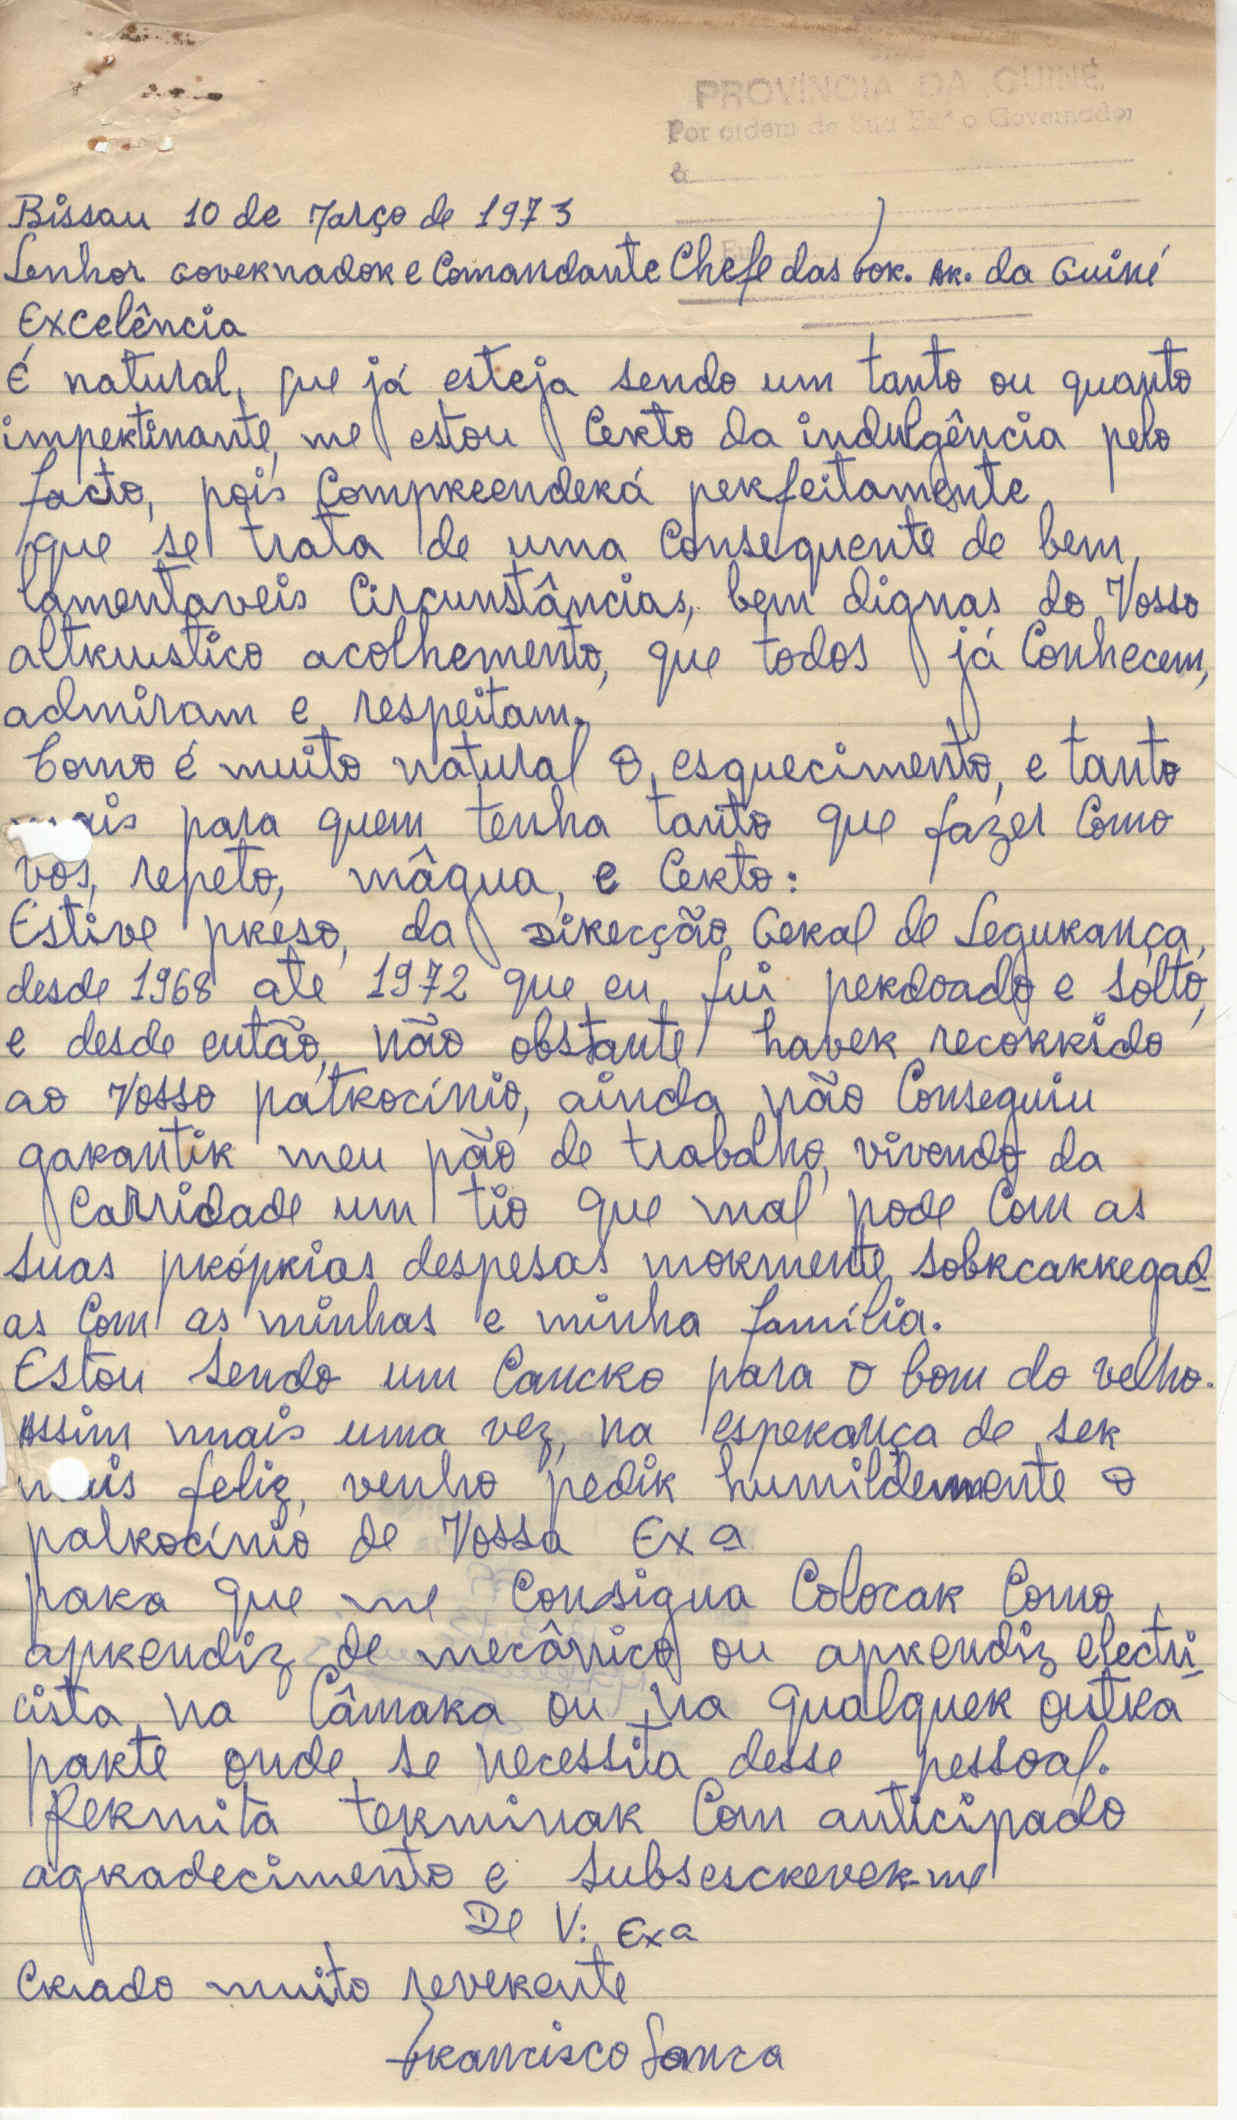 PROVÍNCIA DA GUINÉ
Por ordem de Sua Exª o Governador
à
Bissau 10 de Março de 1973
Senhor Governador e Comandante Chefe das For. Ar. da Guiné
Excelência
É natural, que já esteja sendo um tanto ou quanto
impertinante, me estou Certo da indulgência pelo
facto, pois Compreenderá perfeitamente
que se trata de uma Consequente de bem
lamentaveis Circunstâncias, bem dignas do Vosso
altruistico acolhemento, que todos já Conhecem,
admiram e respeitam.
Como é muito natural o esquecimento, e tanto
mais para quem tenha tanto que fazer Como
vos, repeto, mâgua, e Certo:
Estive preso, da Direcção Geral de Segurança,
desde 1968 ate 1972 que eu fui perdoado e solto,
e desde então, não obstante haver recorrido
ao Vosso patrocínio, ainda não Conseguiu
garantir meu pão de trabalho, vivendo da
Carridade um tio que mal pode Com as
suas próprias despesas mormente sobrcarregad
as Com as minhas e minha família.
Estou sendo um Cancro para o bom do velho.
Assim mais uma vez, na esperança de ser
mais feliz, venho pedir humildemmente o
palrocínio de Vossa Exa
para que me Consigua Colocar Como
aprendiz de mecânico ou aprendiz electri
cista na Câmara ou na qualquer outra
parte onde se necessita desse pessoal.
Permita terminar Com anticipado
agradecimento e subsescrever-me
De V: Exa
Criado muito reverente
Francisco Sanca